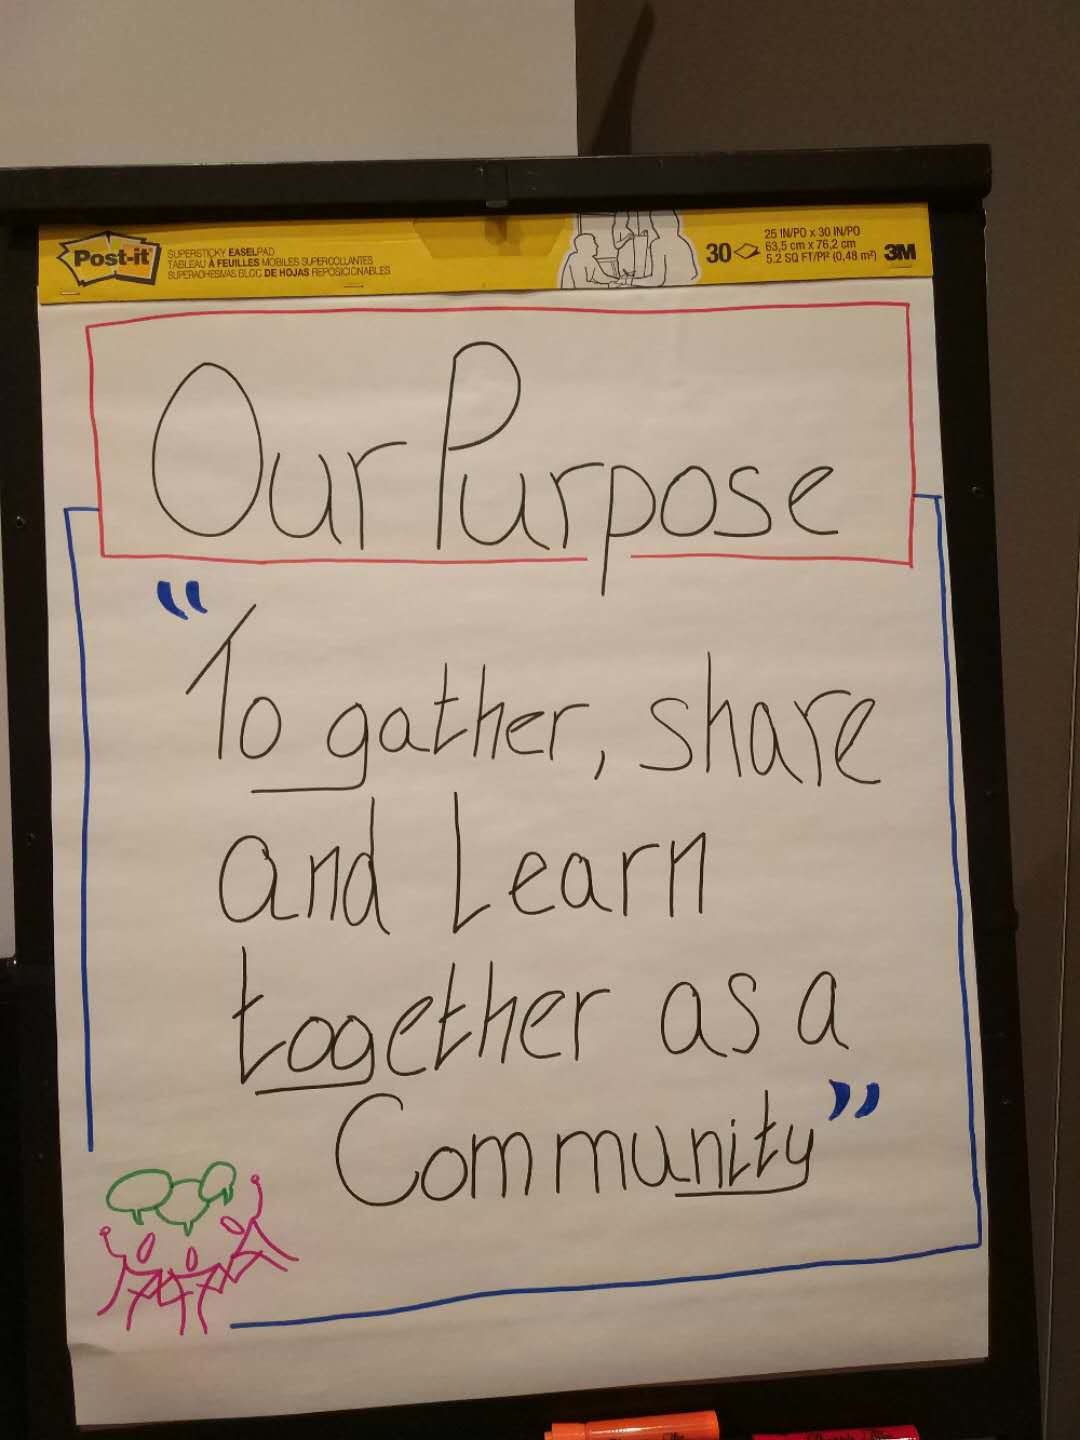 Post-it
SUPERSTICKY EASEL PAD
TABLEAU À FEUILLES MOBILES SUPERCOLLANTES
SUPERADHESIVAS BLOC DE HOJAS REPOSICIONABLES
30
25 IN/PO x 30 IN/PO
63,5 cm x 76,2 cm
5.2 SQ FT/PI² (0,48 m²)
3M
Our Purpose
“To gather, share
and Learn
together as a
Community”